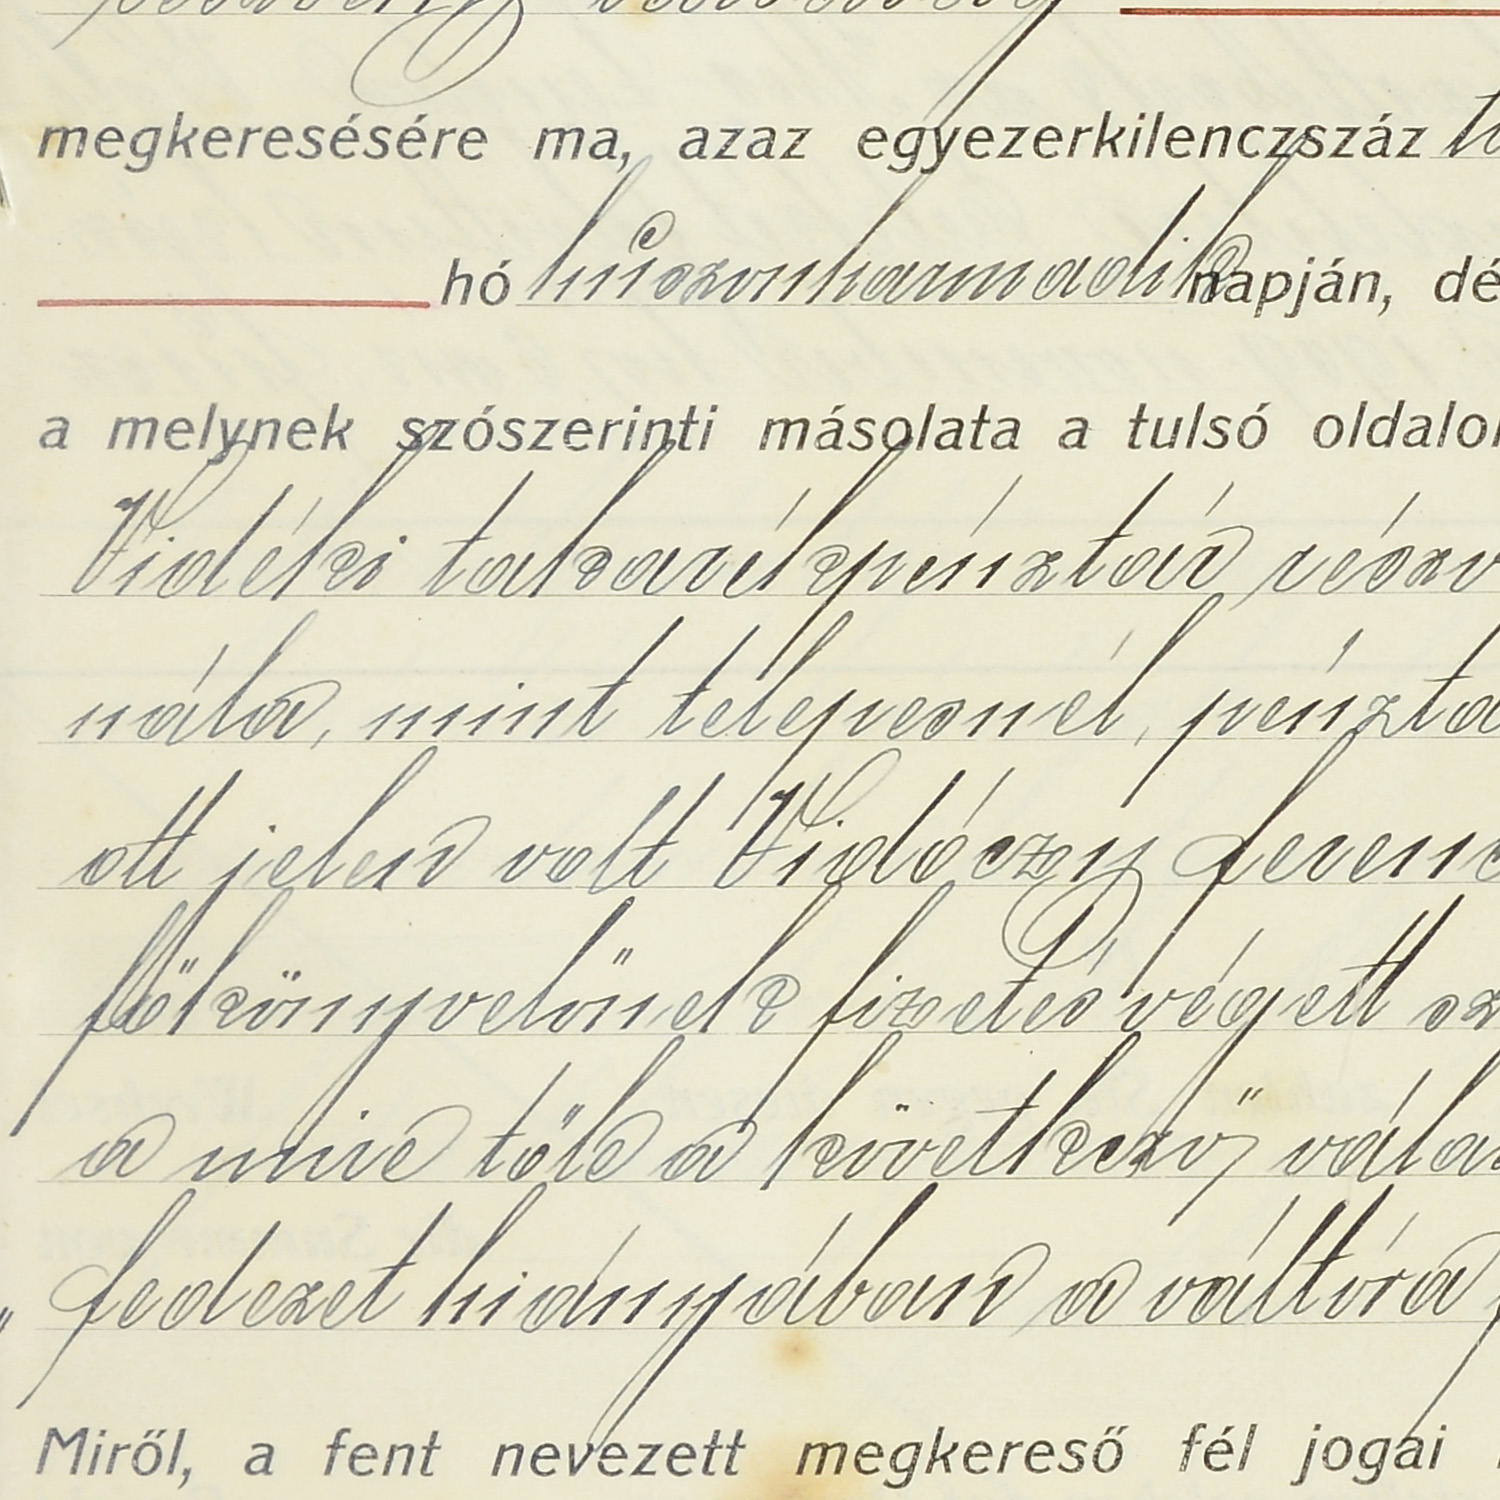 megkeresésére ma, azaz egyezerkilenczszáz
hó húszonharmadik napján, dé
a melynek szószerinti másolata a tulsó oldalon
Vidéki takarékpénztár részv
nála, mint telepesnél, pénzta
ott jelen volt Vidóczy Ferenc
főkönyvelőnek fizetés végett sz
a mire tőle a következő vála
„fedezet hiányában a váltóra
Miről, a fent nevezett megkereső fél jogai